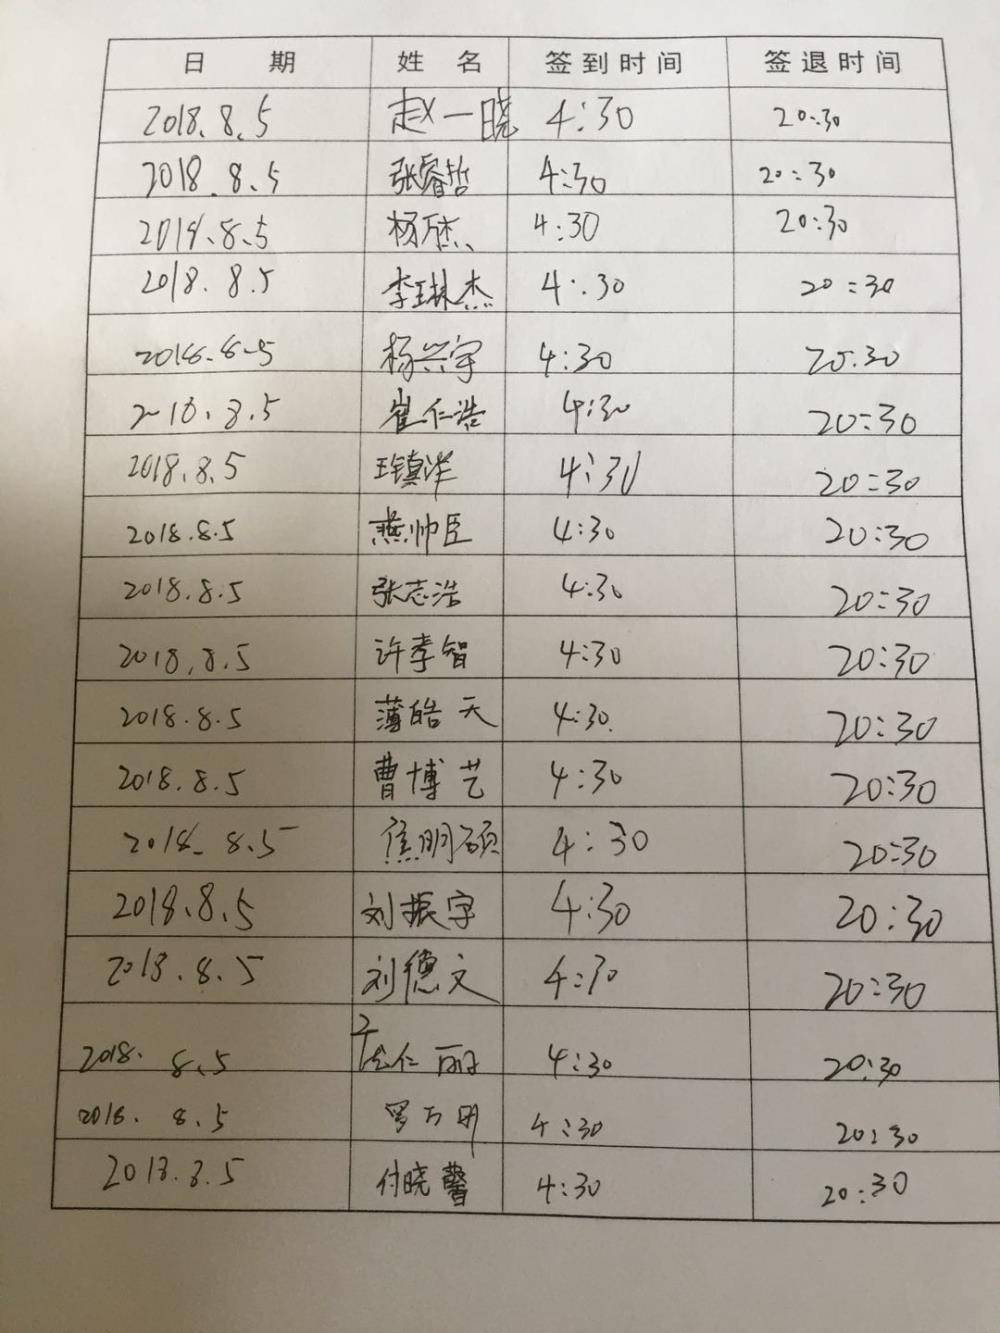 日 期 姓 名 签到时间 签退时间
2018.8.5 赵一晓 4:30 20:30
2018.8.5 张睿哲 4:30 20:30
2018.8.5 杨杰 4:30 20:30
2018.8.5 李琳杰 4:30 20:30
2018.8.5 杨兴宇 4:30 20:30
2018.8.5 崔仁浩 4:30 20:30
2018.8.5 王镇洋 4:30 20:30
2018.8.5 燕帅臣 4:30 20:30
2018.8.5 张志浩 4:30 20:30
2018.8.5 许孝智 4:30 20:30
2018.8.5 薄皓天 4:30 20:30
2018.8.5 曹博艺 4:30 20:30
2018.8.5 焦明硕 4:30 20:30
2018.8.5 刘振宇 4:30 20:30
2018.8.5 刘德文 4:30 20:30
2018.8.5 仁丽 4:30 20:30
2018.8.5 罗万明 4:30 20:30
2018.8.5 付晓馨 4:30 20:30